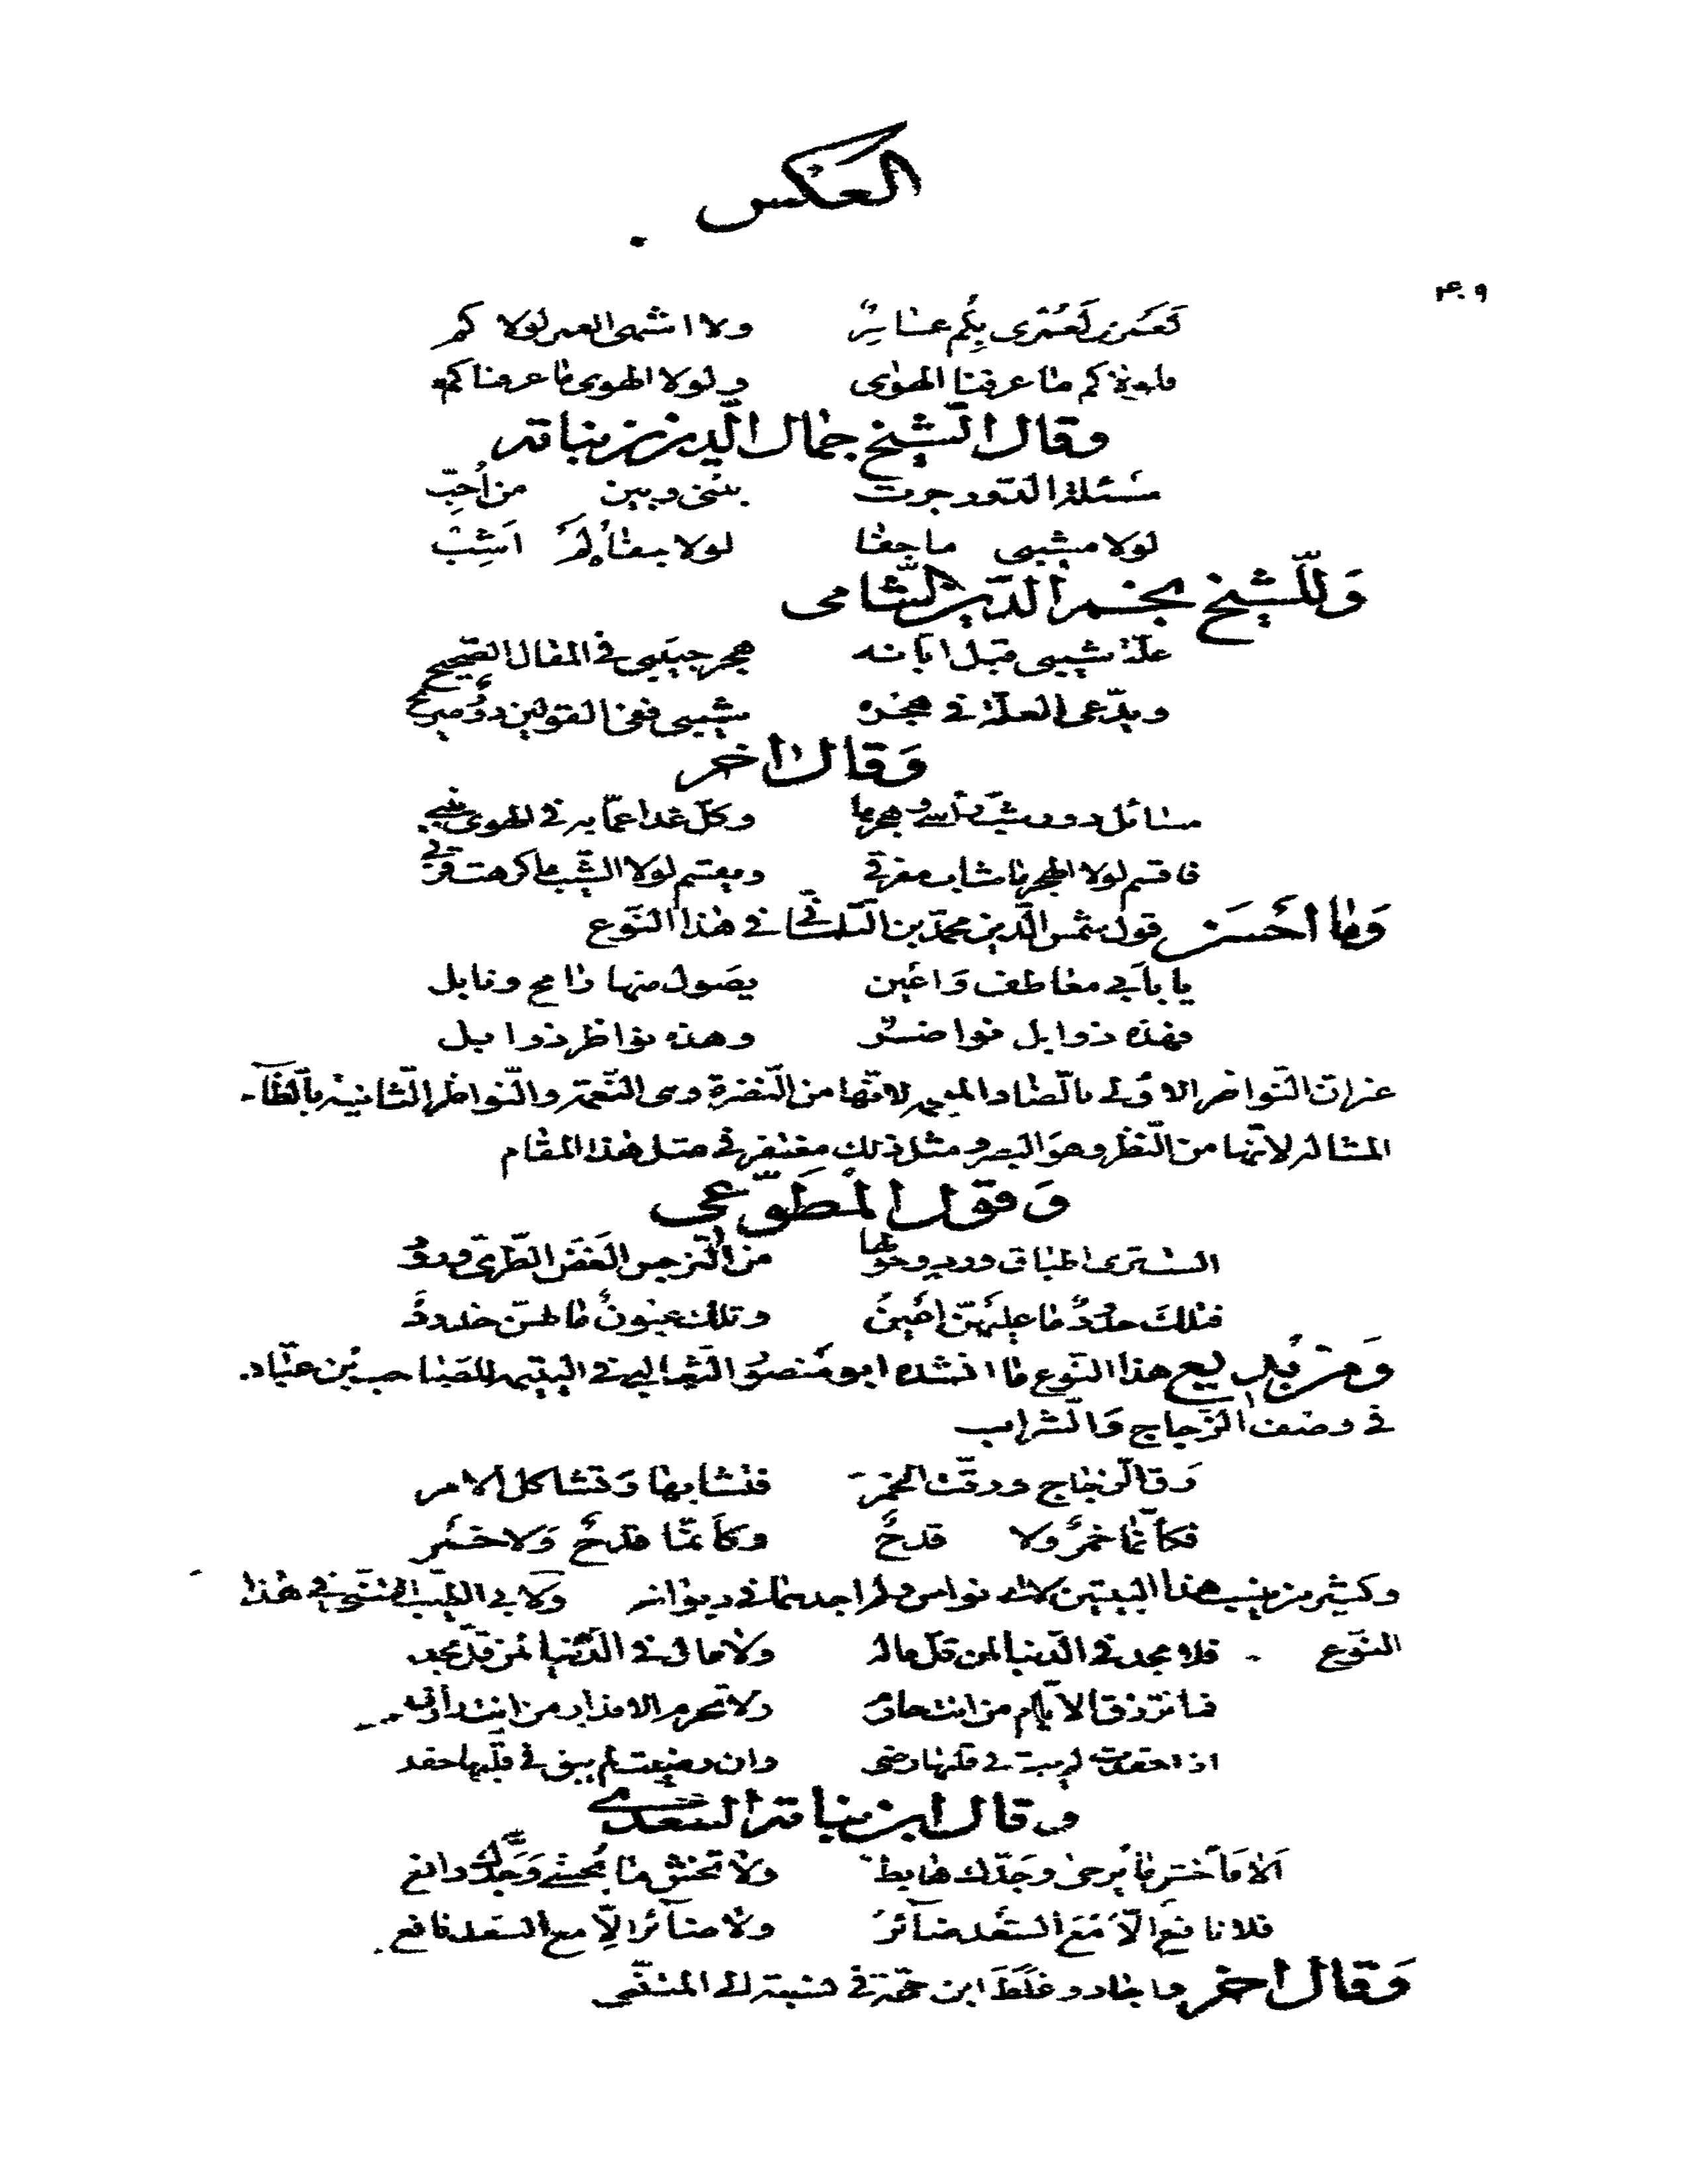 العكس
٤٠٩
لعمرى بكم عنا ولا اشتهى العمر لولا كم
فلولا كم ما عرفنا الهوى ولولا الهوى ما عرفناكم
وقال الشيخ جمال الدين بن نباته
مسئلة الدور جرت بينى وبين من أحبّ
لولا مشيبى ما جفا لولا جفاه لم أشب
وللشيخ نجم الدين الشامى
علّة شيبى قبل ابانه هجر حبيبى فى المقال الصّحيح
ويدّعى العلّة فى هجره شيبى ففى القولين دور صريح
وقال اخر
مسائل دور شيب رأسى وهجرها وكلّ غدا عمّا به فى الهوى
فاقسم لولا الهجر ما شاب مفرقى وتقسم لولا الشّيب ما كرهت قربى
وما أحسن قول شمس الدّين محمّد بن التلمسانى فى هذا النّوع
يا بأبى معاطف وَاعين يصول منها رامح ونابل
فهذه ذوابل نواضر وهذه نواظر ذوابل
غير انّ النّواضر الاولى بالضّاد المعجمه لانّها من النّضرة وهى النّعمة والنّواظر الثّانيه بالظّاء
المشاله لانّها من النّظر وهو البصر ومثل ذلك مغتفر فى مثل هذا المقام
وقول المطوّعى
الست ترى اطباق ورد وحولها من النّرجس الغضّ الطّرىّ قدود
فتلك خدود ما عليهنّ اعين وتلك عيون ما لهنّ خدود
ومن بديع هذا النّوع ما انشده ابو منصور الثّعالبى فى اليتيمه للصّاحب بن عبّاد
فى وصف الزّجاج وَالشّراب
رَقّ الزّجاج ورقّت الخمر فتشابها وتشاكل الامر
فكانّما خمر ولا قدح وكأنّما قدح ولا خمر
وكثير من ينسب هذا البيتين لابى نواس ولم اجدهما فى ديوانه ولابى الطّيب المتنبّى فى هذا
النّوع فلا مجد فى الدّنيا لمن قلّ ماله ولا مال فى الدّنيا لمن قلّ مجده
فما ترزق الايّام من انت حارم ولا تحرم الاقدار من انت
اذا حقدت لم يبق فى قلبها رضى وان رضيت لم يبق فى قلبها حقد
وقال ابن نباته السّعدى
الا فاخش ما يرجى وجدّك هابط ولا تخش ما يخشى وجدّك رافع
فلا نافع الّا مع السّعد ضائر ولا ضائر الّا مع السعد نافع
وقال اخر واجاد وغلط ابن حجّة فى نسبته الى المتنبّى